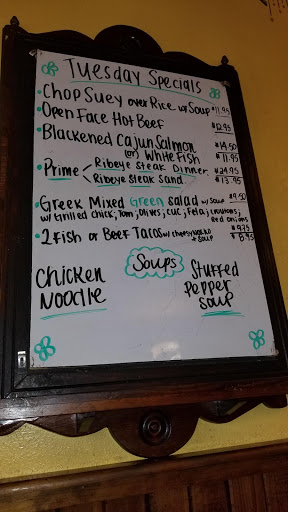 Tuesday Specials
• Chop Suey over Rice w/ Soup $11.95
• Open Face Hot Beef $12.95
• Blackened Cajun Salmon $14.50
(or) White Fish $11.95
• Prime < Ribeye Steak Dinner $24.95
Ribeye Steak Sand $13.95
• Greek Mixed Green Salad w/ Soup $9.50
w/ Grilled chick, Tom, Olives, cuc, Feta, croutons, Red onions
• 2 Fish or Beef Tacos w/ cheesy + Soup
Soups
Chicken Noodle
Stuffed Pepper Soup